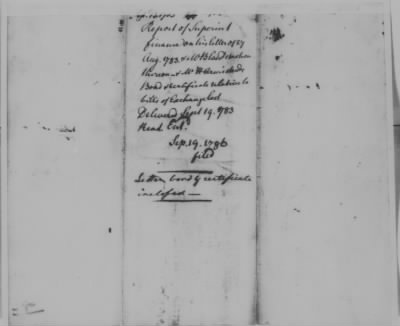 Report of Superint
finance on his letter of 27
Aug. 1783 & Mr Bland motion
thereon & Mr
Bond & certificate relative to
bills of Exchange lost
Delivered Sept 19. 1783
Read. Ent.d
Sep. 19. 1786
filed
Letter bond & certificate
inclosed —